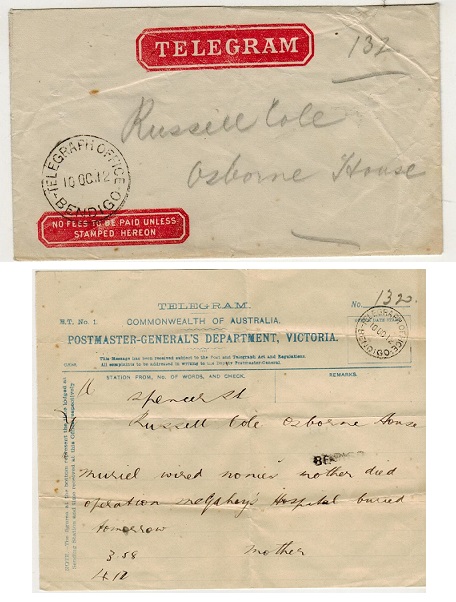 TELEGRAM
132
Russell Cole
Osborne House
TELEGRAPH OFFICE
10 OC 12
BENDIGO
NO FEES TO BE PAID UNLESS
STAMPED HEREON
TELEGRAM.
No. 132
B.T. No. 1. COMMONWEALTH OF AUSTRALIA.
POSTMASTER-GENERAL'S DEPARTMENT, VICTORIA.
This Message has been received subject to the Post and Telegraph Act and Regulations.
All complaints to be addressed in writing to the Deputy Postmaster-General.
STATION FROM, No. OF WORDS, AND CHECK.
REMARKS.
TELEGRAPH OFFICE
10 OC 12
BENDIGO
Spencer St
Russell Cole Osborne House
muriel wired mother died
operation Hospital buried
tomorrow
3 58
4 12
mother